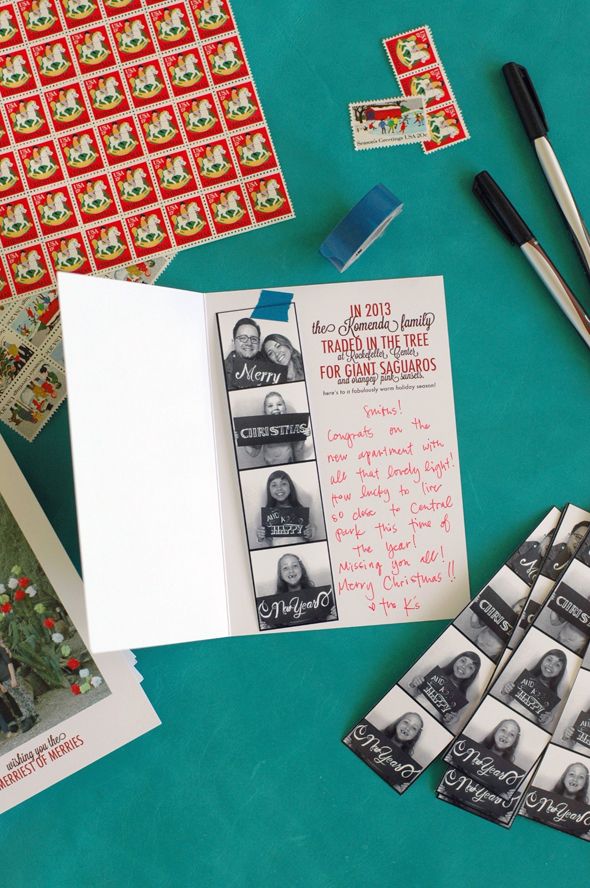 USA 13c
Season's Greetings USA 20c
IN 2013
the Komenda family
TRADED IN THE TREE
at Rockefeller Center
FOR GIANT SAGUAROS
and orangey pink sunsets.
here's to a fabulously warm holiday season!
Merry
CHRISTMAS
AND A
HAPPY
New Year
Smiths!
Congrats on the
new apartment with
all that lovely light!
How lucky to live
so close to Central
park this time of
the year!
Missing you all!
Merry Christmas!!
the K's
wishing you the
MERRIEST OF MERRIES
CHRISTMAS
AND A
HAPPY
New Year
CHRISTMAS
AND A
HAPPY
New Year
New Year
New Year